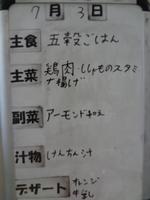 7月3日
主食 五穀ごはん
主菜 鶏肉・ししゃものスタミ
ナ揚げ
副菜 アーモンド和え
汁物 けんちん汁
デザート オレンジ
牛乳